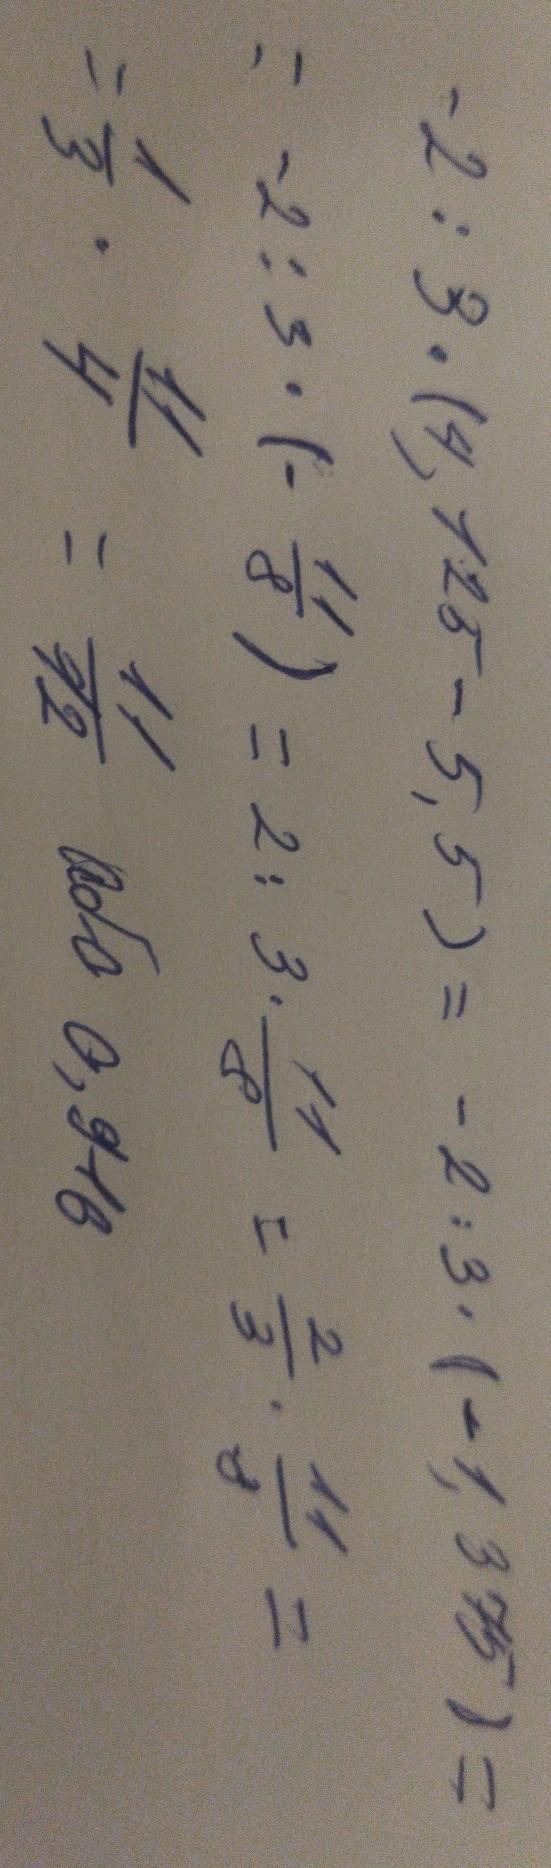 -2 : 3 · (4,125 - 5,5) = -2 : 3 · (-1,375) =
= -2 : 3 · (- 11/8) = 2 : 3 · 11/8 = 2/3 · 11/8 =
= 1/3 · 11/4 = 11/12 або 0,916